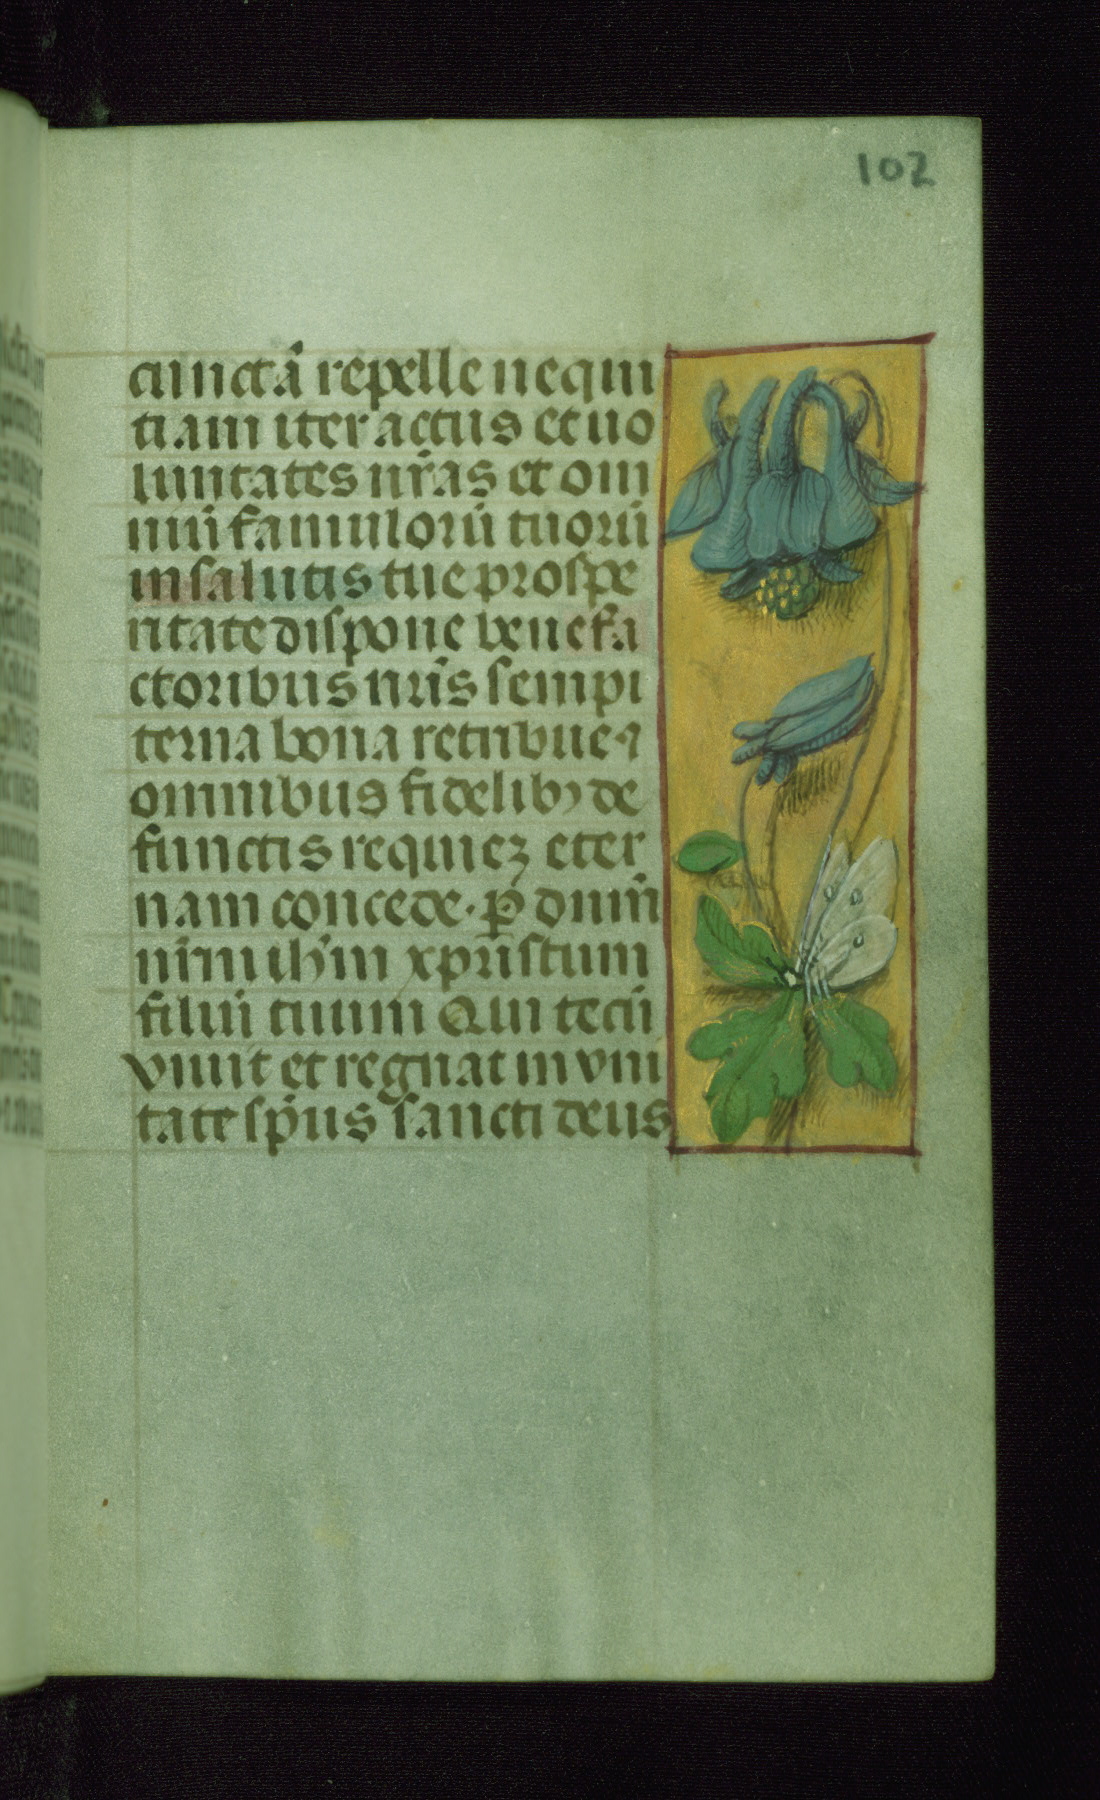 102
cunctā repelle nequi
tiam iter actus et uo
luntates nr̄as et om
niū famulorū tuorū
in salutis tue prospe
ritate dispone benefa
ctoribus nr̄is sempi
terna bona retribue ⁊
omnibus fidelibꝰ de
functis requieꝫ eter
nam concede. ꝑ dnm̄
nr̄m ih̄m xpristum
filiū tuum Qui tecū
viuit et regnat in vni
tate sp̄us sancti deus